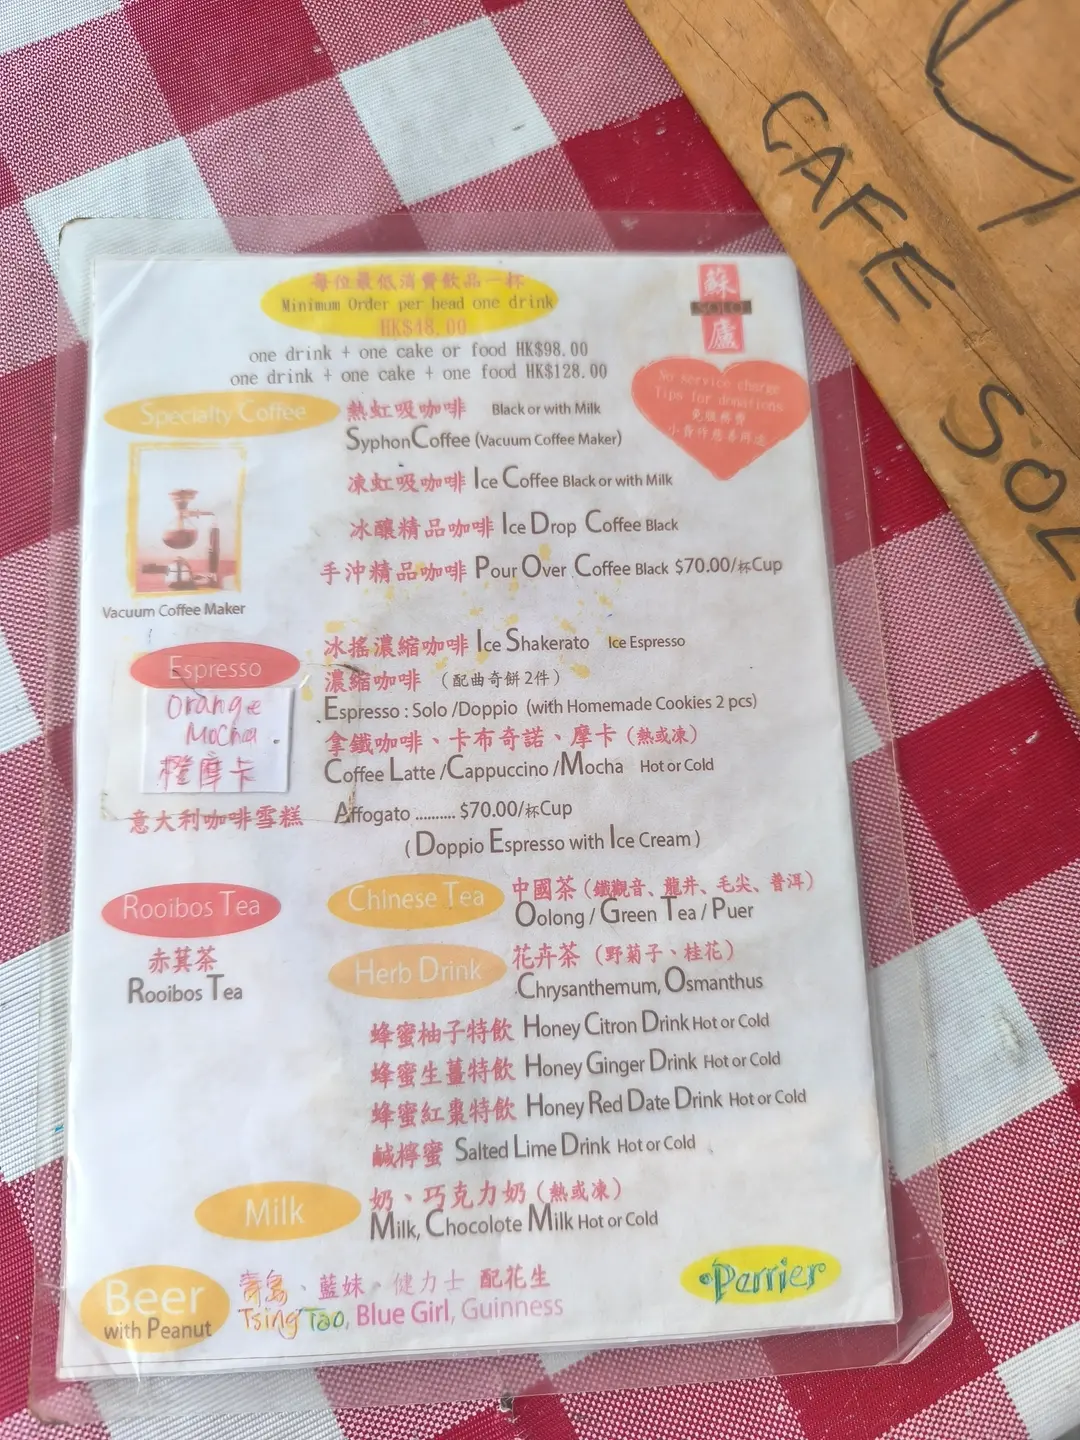 每位最低消費飲品一杯
Minimum Order per head one drink
HK$48.00
one drink + one cake or food HK$98.00
one drink + one cake + one food HK$128.00
蘇
SOLO
廬
No service charge
Tips for donations
免服務費
小費作慈善用途
CAFE SOLO
Specialty Coffee
熱虹吸咖啡 Black or with Milk
Syphon Coffee (Vacuum Coffee Maker)
凍虹吸咖啡 Ice Coffee Black or with Milk
冰釀精品咖啡 Ice Drop Coffee Black
手沖精品咖啡 Pour Over Coffee Black $70.00/杯Cup
Vacuum Coffee Maker
Espresso
Orange
Mocha
橙摩卡
冰搖濃縮咖啡 Ice Shakerato Ice Espresso
濃縮咖啡 （配曲奇餅2件）
Espresso : Solo /Doppio (with Homemade Cookies 2 pcs)
拿鐵咖啡、卡布奇諾、摩卡（熱或凍）
Coffee Latte /Cappuccino /Mocha Hot or Cold
意大利咖啡雪糕 Affogato .......... $70.00/杯Cup
( Doppio Espresso with Ice Cream )
Rooibos Tea
赤萁茶
Rooibos Tea
Chinese Tea
中國茶（鐵觀音、龍井、毛尖、普洱）
Oolong / Green Tea / Puer
Herb Drink
花卉茶（野菊子、桂花）
Chrysanthemum, Osmanthus
蜂蜜柚子特飲 Honey Citron Drink Hot or Cold
蜂蜜生薑特飲 Honey Ginger Drink Hot or Cold
蜂蜜紅棗特飲 Honey Red Date Drink Hot or Cold
鹹檸蜜 Salted Lime Drink Hot or Cold
Milk
奶、巧克力奶（熱或凍）
Milk, Chocolote Milk Hot or Cold
Beer
with Peanut
青島、藍妹、健力士 配花生
Tsing Tao, Blue Girl, Guinness
•Perrier